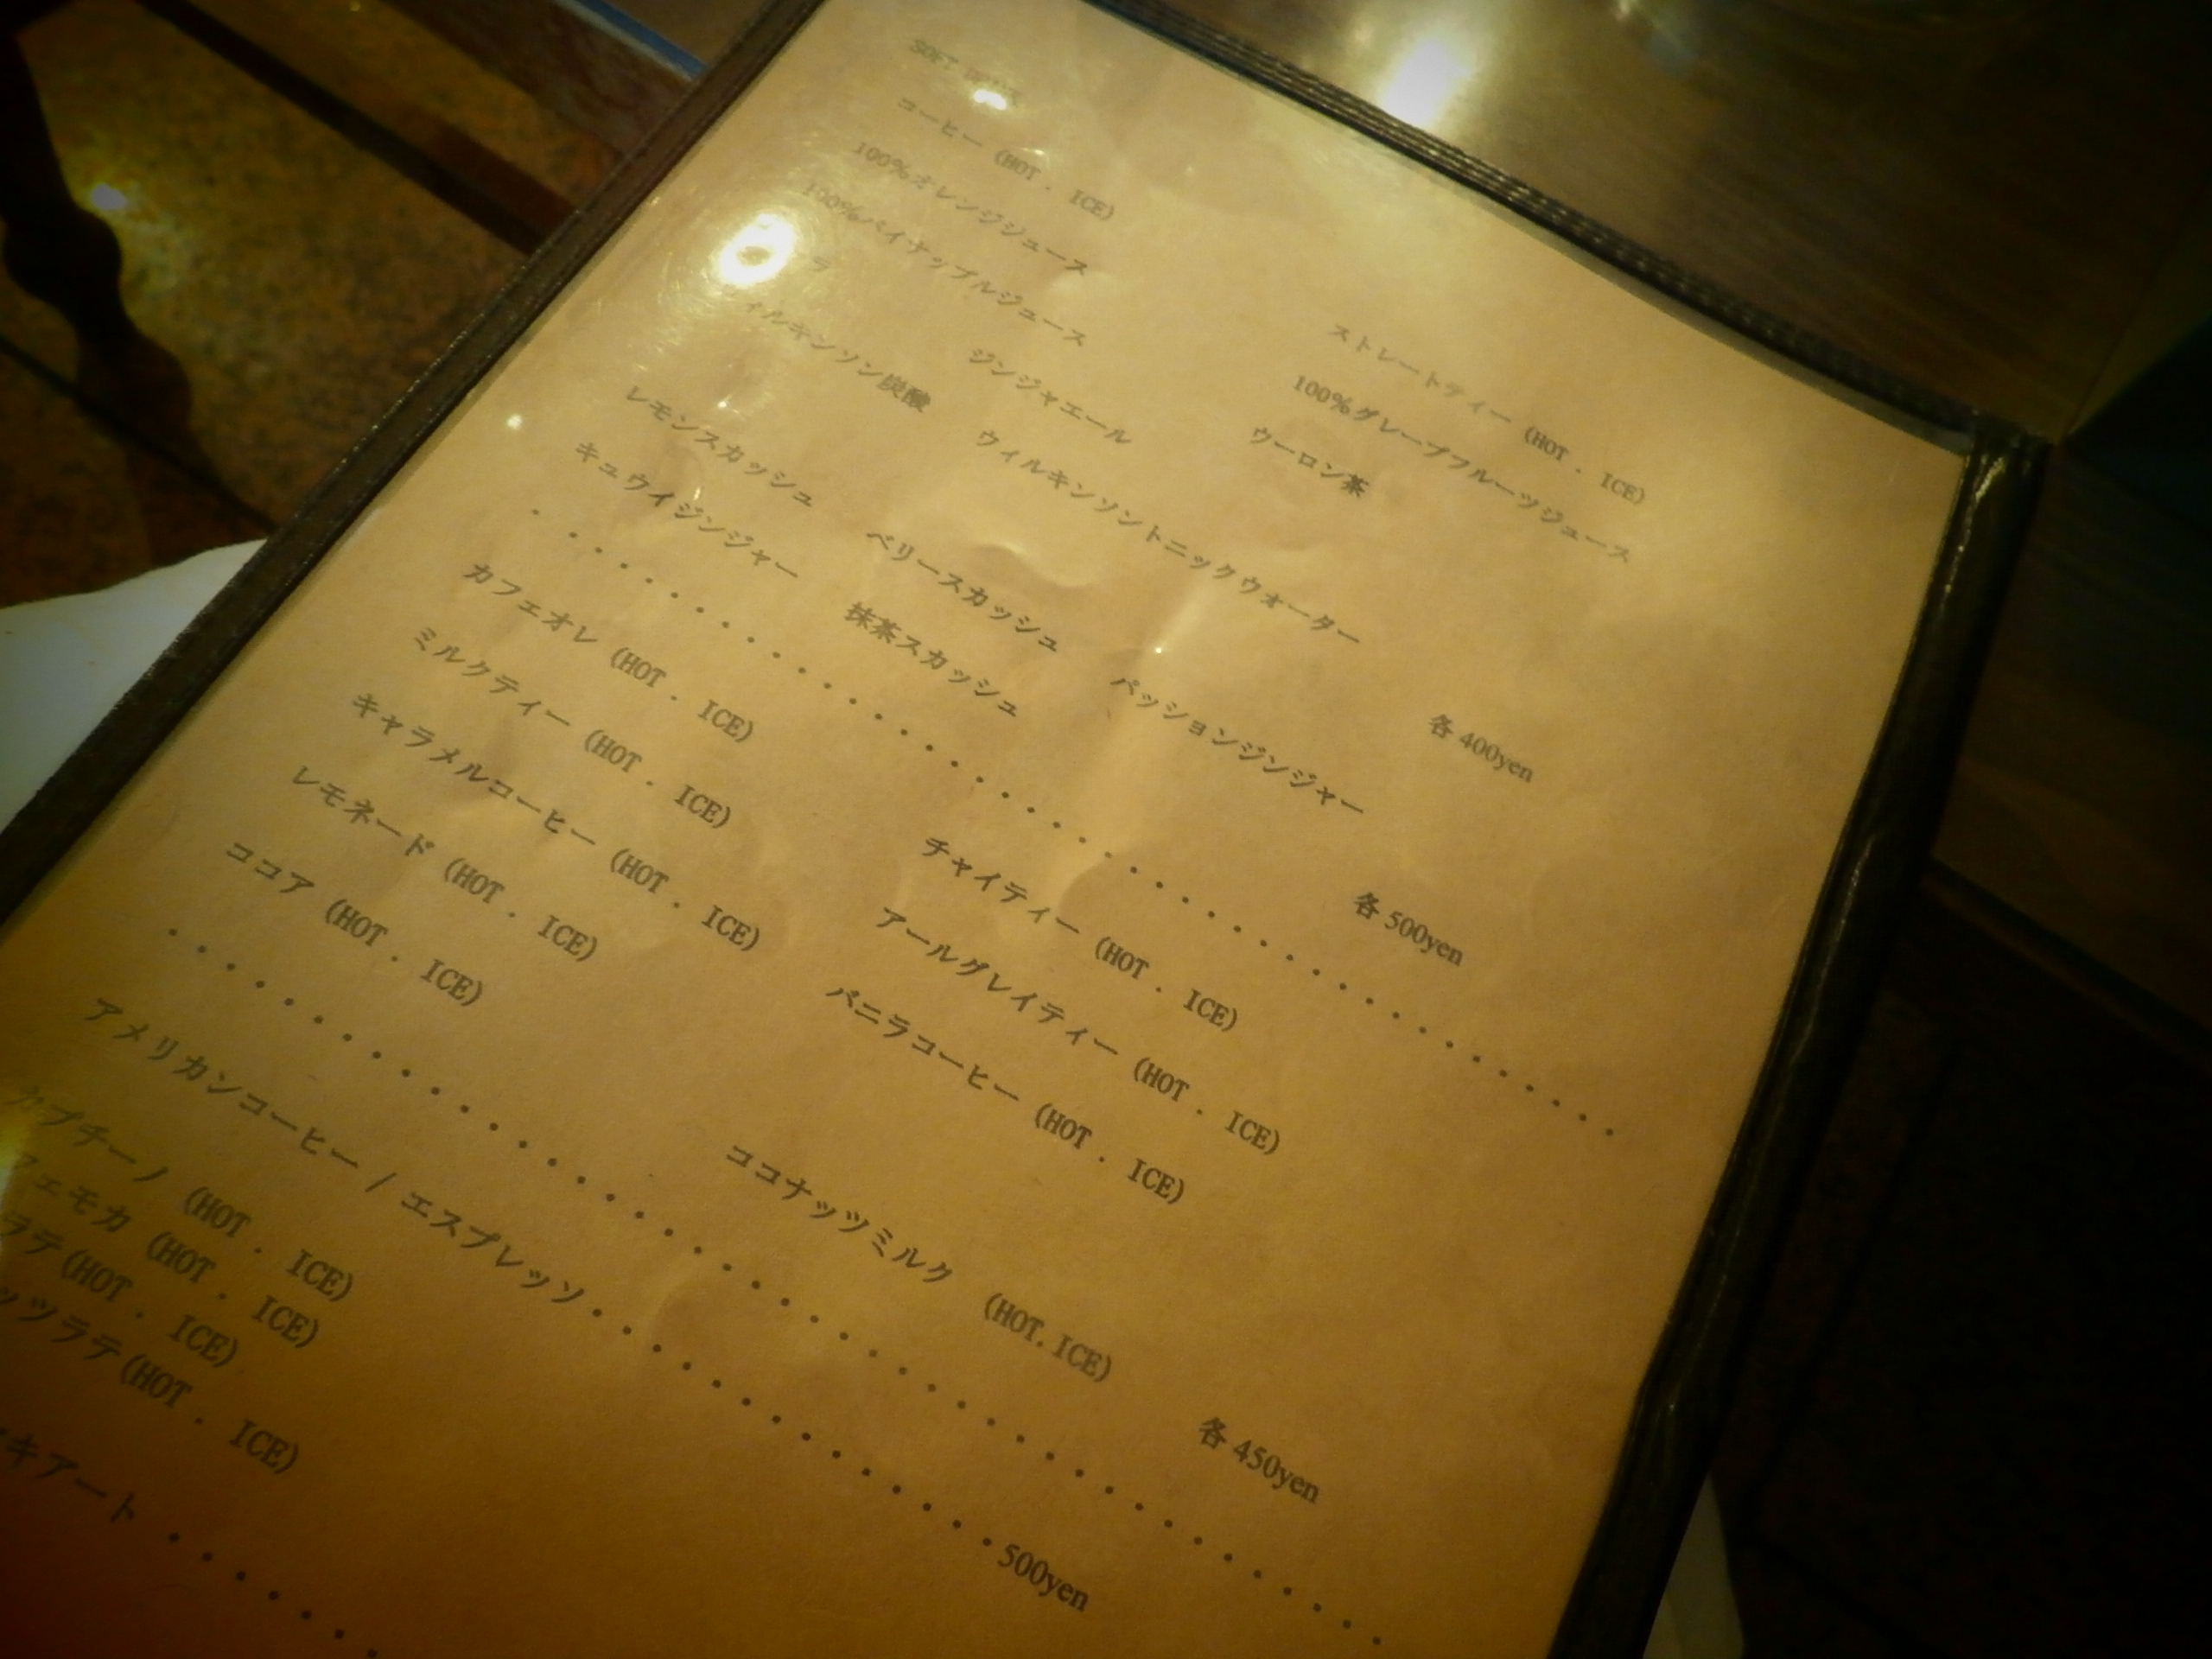 SOFT
コーヒー (HOT ・ ICE) ストレートティー (HOT ・ ICE)
100%オレンジジュース 100%グレープフルーツジュース
100%パイナップルジュース ウーロン茶
ラ ジンジャエール
ィルキンソン炭酸 ウィルキンソントニックウォーター 各400yen
レモンスカッシュ ベリースカッシュ パッションジンジャー
キュウイジンジャー 抹茶スカッシュ 各500yen
カフェオレ (HOT ・ ICE) チャイティー (HOT ・ ICE)
ミルクティー (HOT ・ ICE) アールグレイティー (HOT ・ ICE)
キャラメルコーヒー (HOT ・ ICE) バニラコーヒー (HOT ・ ICE)
レモネード (HOT ・ ICE)
ココア (HOT ・ ICE) ココナッツミルク (HOT. ICE) 各450yen
アメリカンコーヒー / エスプレッソ・・・・・・・・・・・・・・500yen
カプチーノ (HOT ・ ICE)
フェモカ (HOT ・ ICE)
ラテ(HOT ・ ICE)
ッツラテ(HOT ・ ICE)
キアート ・・・・・・・